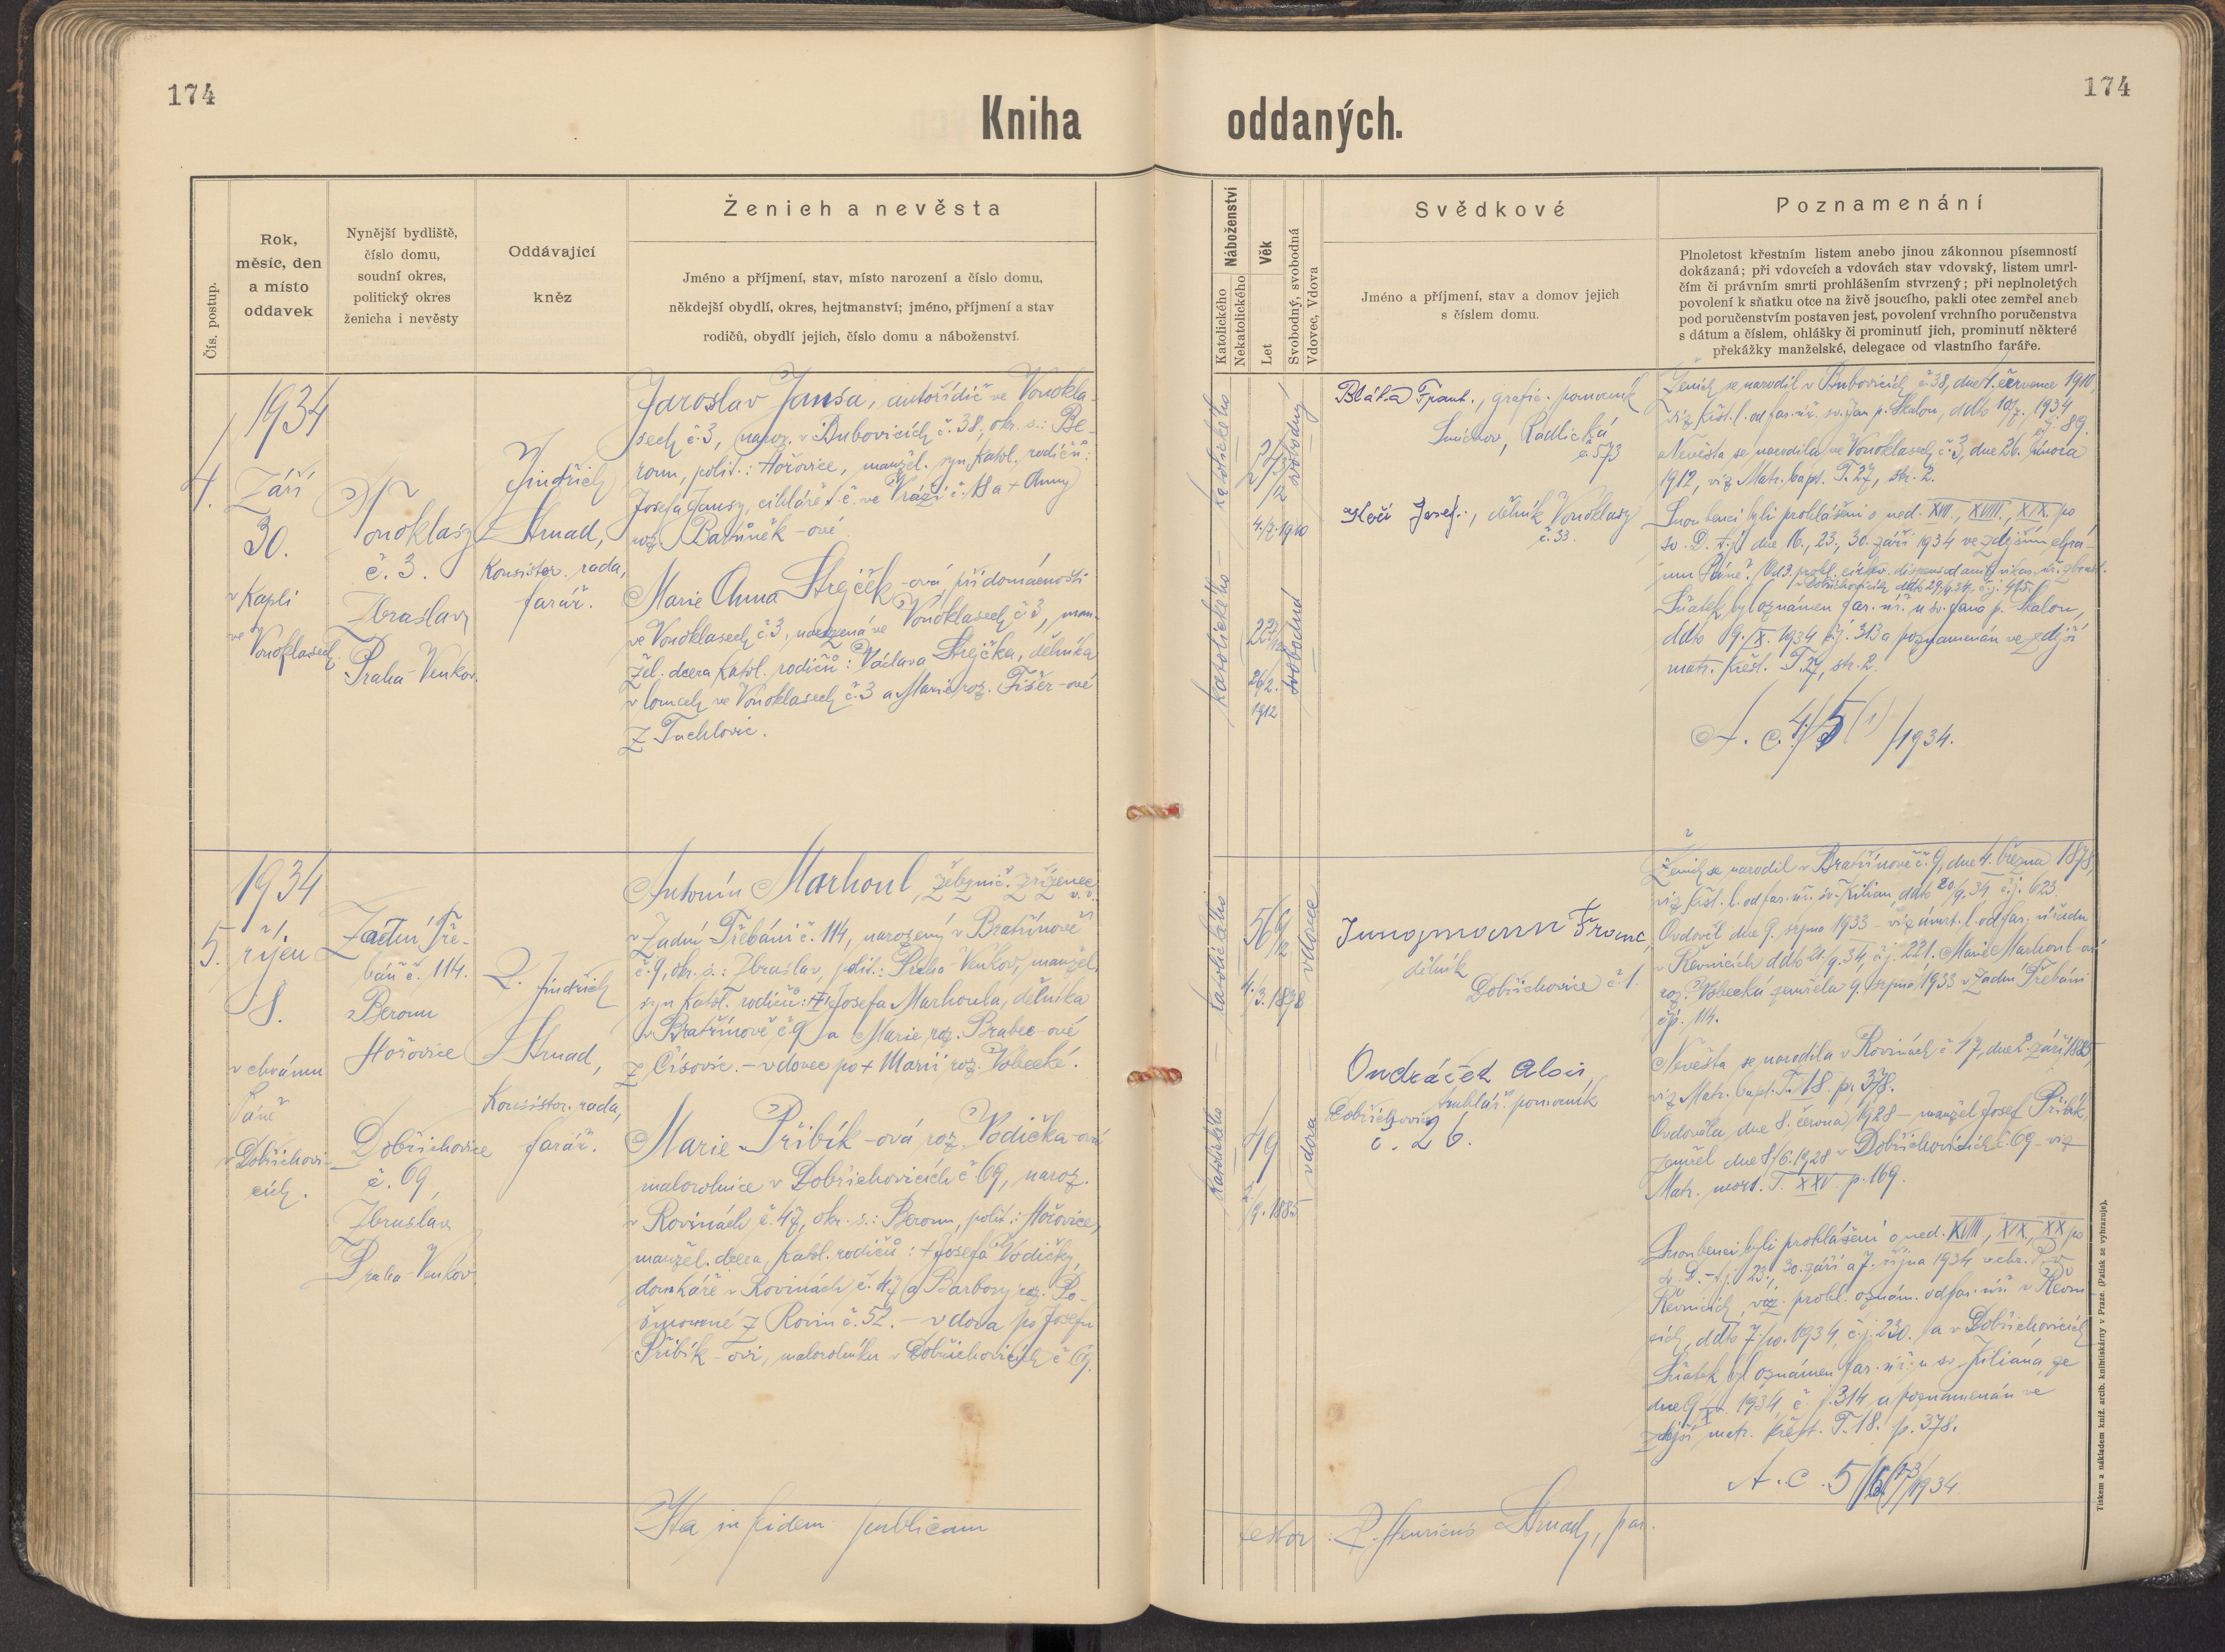 174
174
Kniha oddaných.
Čís. postup.
Rok,
měsíc, den
a místo
oddavek
Nynější bydliště,
číslo domu,
soudní okres,
politický okres
ženicha i nevěsty
Oddávající
kněz
Ženich a nevěsta
Jméno a příjmení, stav, místo narození a číslo domu,
někdejší obydlí, okres, hejtmanství; jméno, příjmení a stav
rodičů, obydlí jejich, číslo domu a náboženství.
Náboženství
Katolického
Nekatolického
Věk
Let
Svobodný, svobodná
Vdovec, Vdova
Svědkové
Jméno a příjmení, stav a domov jejich
s číslem domu.
Poznamenání
Plnoletost křestním listem anebo jinou zákonnou písemností
dokázaná; při vdovcích a vdovách stav vdovský, listem umrl-
čím či právním smrti prohlášením stvrzený; při neplnoletých
povolení k sňatku otce na živě jsoucího, pakli otec zemřel aneb
pod poručenstvím postaven jest, povolení vrchního poručenstva
s dátum a číslem, ohlášky či prominutí jich, prominutí některé
překážky manželské, delegace od vlastního faráře.
4.
1934
Září
30.
v Kapli
ve
Vonoklasech.
Vonoklasy
č. 3.
Zbraslav
Praha-Venkov.
Jindřich
Strnad,
Konsistor. rada,
farář.
Jaroslav Jansa, autořidič ve Vonokla-
sech č. 3, naroz. v Bubovicích č. 38, okr. s.: Be-
roun, polit.: Hořovice, manžel. syn katol. rodičů:
Josefa Jansy, cihláře t. č. ve Vráži č. 18 a + Anny
roz. Barůněk-ové.
Marie Anna Strejček-ová, při domácnosti
ve Vonoklasech č. 3, narozená ve Vonoklasech č. 3, man-
žel. dcera katol. rodičů: Václava Strejčka, dělníka
v lomech ve Vonoklasech č. 3 a Marie roz. Fišer-ové
z Tachlovic.
katolického
24
2/12
4./7. 1910
svobodný
katolického
22
7/12
26/2.
1912
svobodná
Bláha Frant., grafic. pomocník
Smíchov, Radlická
č. 573
Kočí Josef., dělník Vonoklasy
č. 33.
Ženich se narodil v Bubovicích č. 38, dne 4. července 1910,
viz křst. l. od far. úř. sv. Jan p. Skalou, ddto 10/7. 1934
čj. 89.
Nevěsta se narodila ve Vonoklasech č. 3, dne 26. února
1912, viz Matr. bapt. T. 27, str. 2.
Snoubenci byli prohlášeni o ned. XVII., XVIII., XIX. po
sv. D. t. j. dne 16., 23., 30. září 1934 ve zdejším chrá-
mu Páně.
v Dobřichovicích ddto 29./9. 34, č. j. 415.
Sňatek byl oznámen far. úř. u sv. Jana p. Skalou,
ddto 9./X. 1934 čj. 313 a poznamenán ve zdejší
matr. křest. T. 27, str. 2.
A. c. 4/5 (1) /1934.
5.
1934
říjen
8.
v chrámu
Páně
v Dobřichovi-
cích.
Zadní Tře-
báň č. 114.
Beroun
Hořovice
Dobřichovice
č. 69,
Zbraslav
Praha-Venkov.
P. Jindřich
Strnad,
Konsistor. rada,
farář.
Antonín Marhoul, železnič. zřízenec
v. v.
v Zadní Třebáni č. 114, narozený v Bratřínově
č. 9, okr. s.: Zbraslav, polit.: Praha-Venkov, manžel.
syn katol. rodičů: Josefa Marhoula, dělníka
v Bratřínově č. 9 a Marie roz. Brabec-ové
z Čísovic. – vdovec po + Marii roz. Vobecké.
Marie Přibík-ová roz. Vodička-ová
malorolnice v Dobřichovicích č. 69, naroz.
v Rovinách č. 47, okr. s.: Beroun, polit.: Hořovice,
manžel. dcera katol. rodičů: + Josefa Vodičky,
domkáře v Rovinách č. 47 a Barbory roz. Po-
z Rovin č. 52. – vdova po Josefu
Přibík-ovi, malorolníku v Dobřichovicích č. 69.
katolického
56
6/12
4./3. 1878
vdovec
katolického
49
2./9. 1885
vdova
Jungmann Franc,
dělník
Dobřichovice č. 1.
Ondráček Alois,
truhlář. pomocník
Dobřichovice
č. 26.
Ženich se narodil v Bratřínově č. 9, dne 4. března 1878,
viz křst. l. od far. úř. sv. Kilian, ddto 20/9. 34 č. j. 623.
Ovdověl dne 9. srpna 1933 – viz úmrt. l. od far. úřadu
v Řevnicích ddto 21. 9. 34, č. j. 221. Marie Marhoul-ová
roz. Vobecká zemřela 9. srpna 1933 v Zadní Třebáni
čp. 114.
Nevěsta se narodila v Rovinách č. 47, dne 2. září 1885,
viz Matr. bapt. T. 18. p. 378.
Ovdověla dne 8. června 1928 – manžel Josef Přibík,
zemřel dne 8./6. 1928 v Dobřichovicích č. 69 – viz
Matr. mort. T. XXV. p. 169.
Snoubenci byli prohlášeni o ned. XVIII., XIX., XX po
sv. D. – t. j. 23., 30. září a 7. října 1934 v chr. P. v
Řevnicích, viz. prohl. oznám. od far. úř. v Řevni-
cích, ddto 7./10. 1934, č. j. 230. a v Dobřichovicích
Sňatek byl oznámen far. úř. u sv. Kiliána, ze
dne 9./X. 1934, č. j. 314 a poznamenán ve
zdejší matr. křest. T. 18. p. 378.
A. c. 5/6 /1934.
Ita in fidem publicam
testor: P. Henricus Strnad, par.
Tiskem a nákladem kníž. arcib. knihtiskárny v Praze. (Patisk se vyhrazuje).